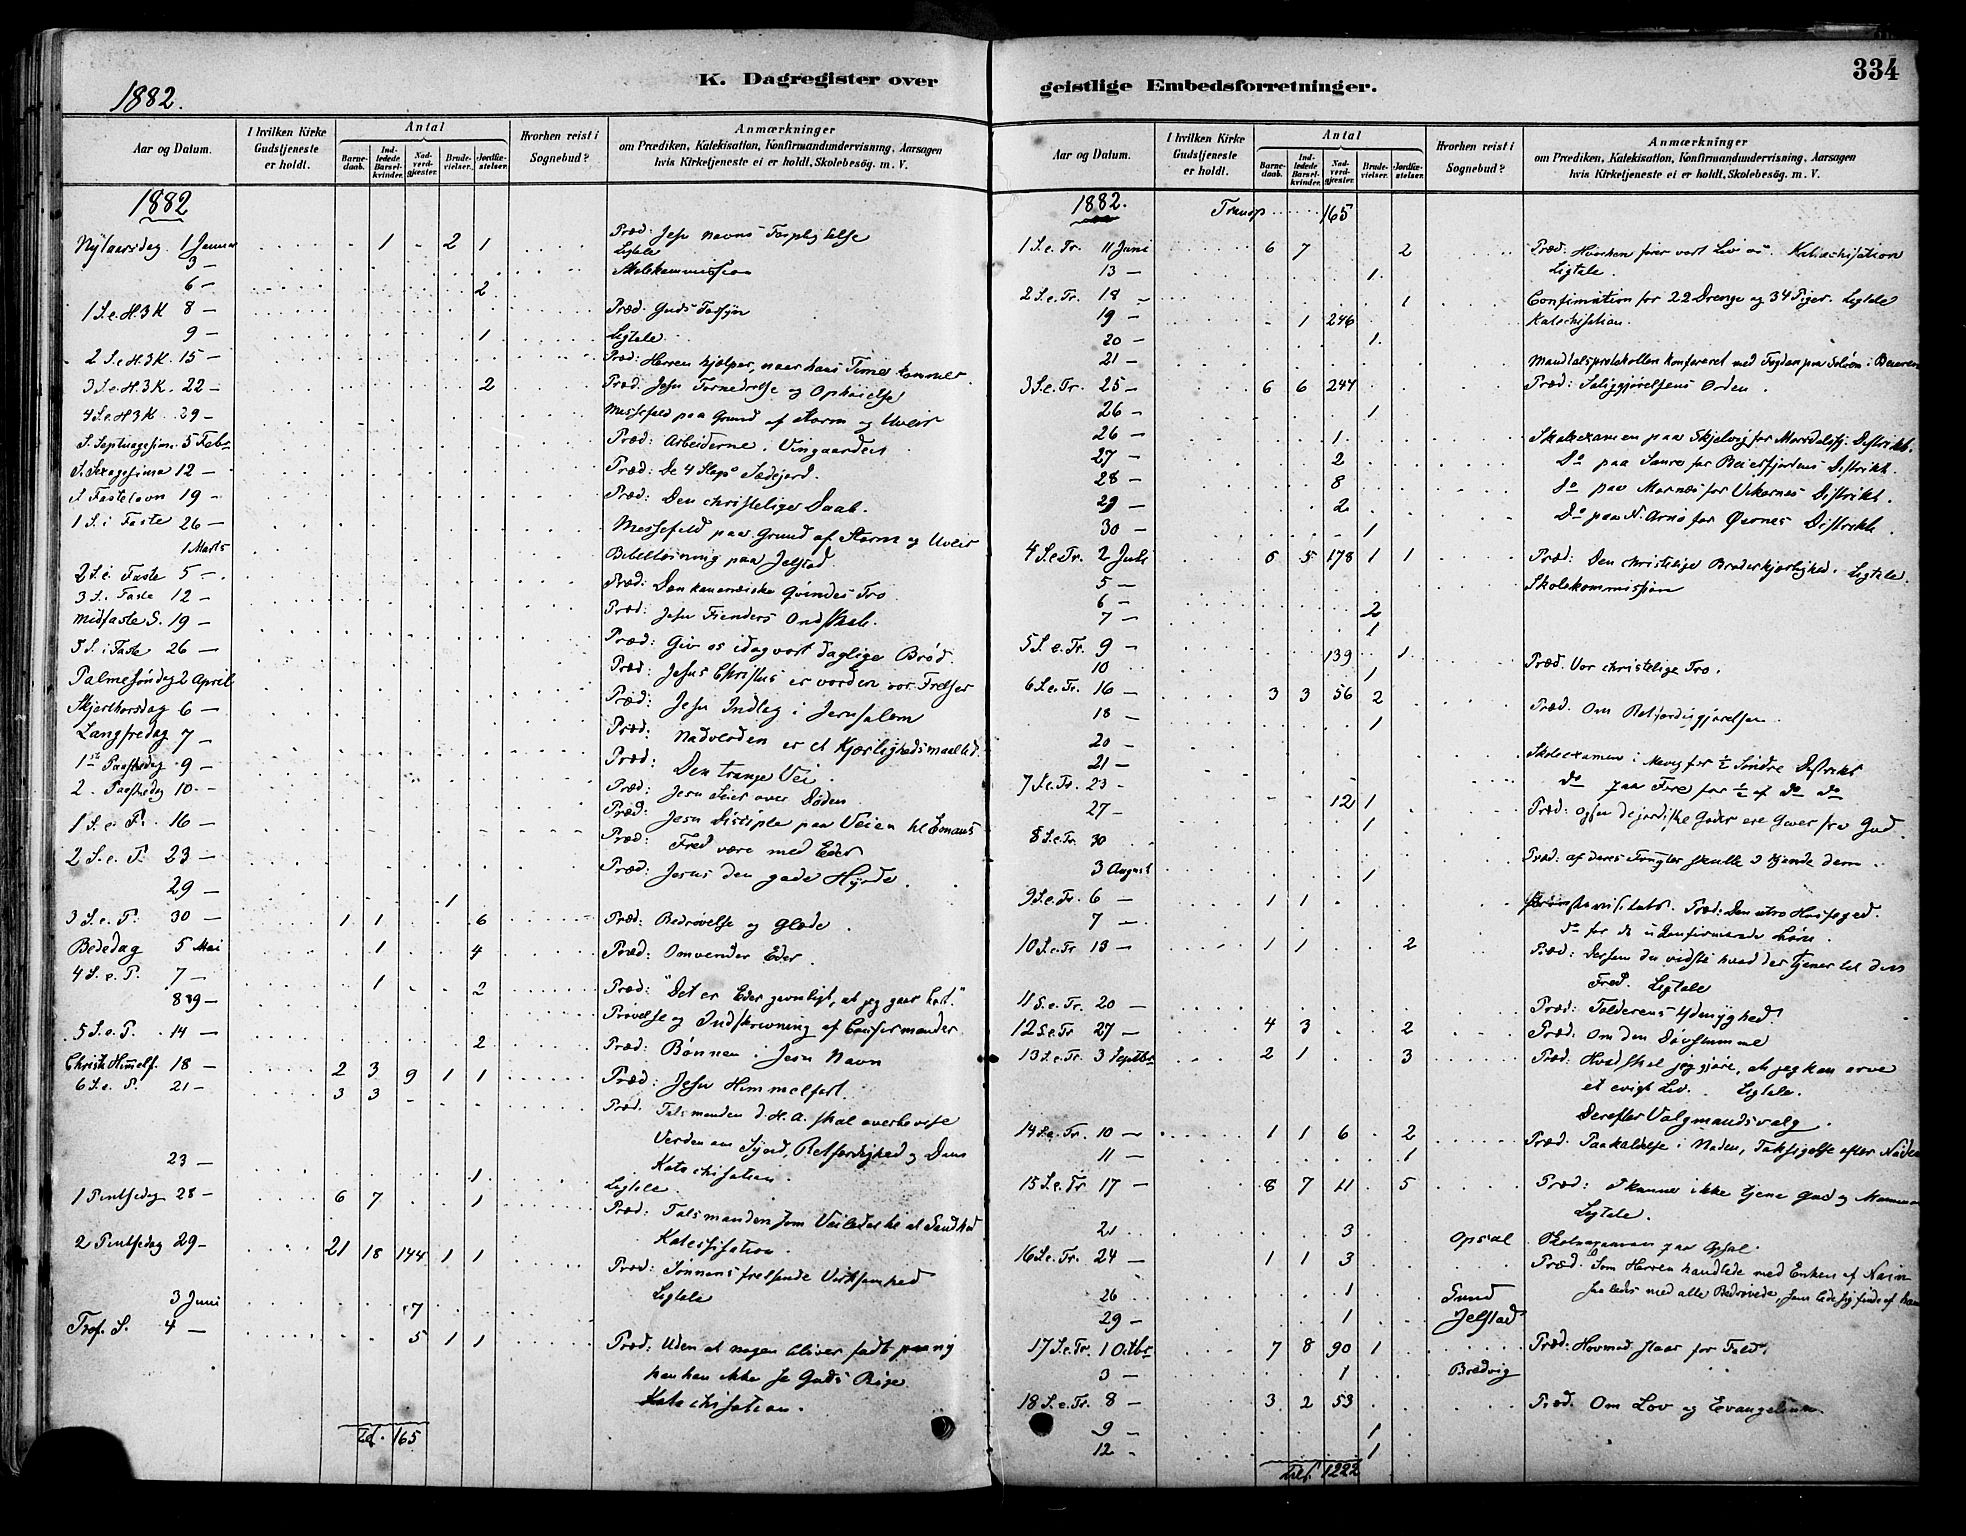 K. Dagregister over
1882.
Aar og Datum.
I hvilken Kirke Gudstjeneste er holdt.
Antal
Barne-daab.
Ind-ledede Barsel-kvinder.
Nad-verd-gjæster.
Brude-vielser.
Jordfæ-stelser.
Hvorhen reist i Sognebud?
Anmærkninger
om Prædiken, Katekisation, Konfirmandundervisning, Aarsagen
hvis Kirketjeneste ei er holdt, Skolebesøg. m. V.
1882
Nytaarsdag 1 Januar 1 - 2 1 Præd: Jesu Navns
3 — Ligtale
6 — 2 Skolekommission
1 S.e.H.3K 8 — Præd: Guds Forsyn
9 — 1 Ligtale
2 S.e.H.3K. 15 — Præd: Herren hjælper, naar hans Time kommer
3 S.e.H.3K. 22 — 2 Præd: Jesu Fornedrelse og Ophøielse
4 S.e.H.3K 29 — Messefald paa Grund af Storm og Uveir
S. Septuagesima 5 Febr Præd: Arbeiderne i Vingaarden
S. Sexagesima 12 — Præd: De 4 Slags Sædejord.
S. Fastelavn 19 — Præd: Den christelige Daab.
1 S. i Faste 26 — Messefald paa Grund af Storm og Uveir
1 Marts Bibellæsning paa Jelstad
2 S.i Faste 5 — Præd: Den kananæiske Qvindes Tro
3 S.i Faste 12 — Præd: Jesu Fienders Ondskab.
Midfaste S. 19 — Præd: Giv os idag vort daglige Brød.
5 S. i Faste 26 — Præd: Jesus Christus er vorden vor Frelser
Palmesøndag 2 April Præd: Jesu Indtog i Jerusalem
Skjærthorsdag 6 — Præd: Nadverden er et Kjærlighedsmaaltid.
Langfredag 7 — Præd: Den trange Vei.
1ste Paaskedag 9 — Præd: Jesu Seier over Døden
2. Paaskedag 10 — Præd: Jesu Disciple paa Veien til Emaus
1 S.e.P. 16 — Præd: Fred være med Eder
2 S.e.P. 23 — Præd: Jesus den gode Hyrde.
29 — 1
3 S.e.P. 30 — 1 1 6 Præd: Bedrøvelse og Glæde.
Bededag 5 Mai 1 4 Præd: Omvender Eder.
4 S.e.P. 7 — 1 2 Præd: "Det er Eder gavnligt, at jeg gaar bort."
8 & 9 — Prøvelse og Indskrivning af Confirmander
5 S.e.P. 14 — 2 Præd: Bønnen i Jesu Navn
Christi Himmelf. 18 — 2 3 9 1 1 Præd: Jesu Himmelfart.
6 S.e.P. 21 — 3 3 - - - Præd: Talsmanden d. H. A. skal overbevise
Verden om Synd, Retfærdighed og Dom
Katechisation.
23 — 1 Ligtale.
1 Pintsedag 28 — 6 7 1 Præd: Talsmanden som Veileder til al Sandhed
Katechisation.
2 Pintsedag 29 — 21 18 144 1 1 Præd: Sønnens frelsende Virksomhed
Ligtale
3 Juni 7
Tref. S. 4 — 5 1 1 Præd: Uden at nogen bliver født paany
kan han ikke se Guds Rige.
Katechisation.
165
geistlige Embedsforretninger.
334
Aar og Datum.
I hvilken Kirke Gudstjeneste er holdt.
Antal
Barne-daab.
Ind-ledede Barsel-kvinder.
Nad-verd-gjæster.
Brude-vielser.
Jordfæ-stelser.
Hvorhen reist i Sognebud?
Anmærkninger
om Prædiken, Katekisation, Konfirmandundervisning, Aarsagen
hvis Kirketjeneste ei er holdt, Skolebesøg. m. V.
1882. Transp 165
1 S.e.Tr. 11 Juni 6 7 2 Præd: Katechisation
13 — 1 Ligtale.
2 S.e.Tr. 18 — 1 Confirmation for 22 Drenge og 34 Piger. Ligtale
19 — - 1 246 Katechisation.
20 — 1
21 — Mandtalsprotokollen konfereret med Fogden paa
3 S.e.Tr. 25 — 6 6 247 Præd: Saliggjørelsens Orden.
26 — 1
26 — 1 Skoleexamen paa Skjelvig for Distrikt.
27 — 2 Do paa for Beiarfjordens Distrikt.
28 — 8 Do paa Mornæs for Distrikt.
29 — 2 Do paa N. Arnø for Øernes Distrikt.
30 — 1
4 S.e.Tr. 2 Juli 6 5 178 1 1 Præd: Den christelige Broderkjærlighed. Ligtale.
5 — Skolekommission
6 — 2
7 — 1
5 S.e.Tr. 9 — 139 1 Præd: Vor christelige Tro.
10 — 1
6 S.e.Tr. 16 — 3 3 56 2 Præd. Om Retfærdiggjørelsen.
18 — 1
20 — Skoleexamen i for ½ Søndre Distrikt
21 — do paa for ½ af do do
7 S.e.Tr. 23 — - - 12 1 Præd: Ogsaa de jordiske Goder ere Gaver fra Gud.
27 — 1
8 S.e.Tr. 30 Præd: af deres Frugter skulle I kjende dem.
3 August 1
9 S.e.Tr. 6 — 1 1 Præd: Den utro Husfoged.
7 — do for de ukonfirmerede Børn.
10 S.e.Tr. 13 — 1 1 2 Præd: Dersom du vidste hvad der tjener til din
Fred. Ligtale
11 S.e.Tr. 20 — Præd: Tolderens Ydmyghed.
12 S.e.Tr. 27 — 4 3 2 Præd: Om den Døvstumme
13 S.e.Tr. 3 Septbr 2 1 3 Præd: Hvad skal jeg gjøre, at jeg kan arve
et evigt Liv. Ligtale.
Derefter Valgmandsvalg.
14 S.e.Tr. 10 — 1 1 6 2 Præd: Paakaldelse i Nøden, Taksigelse efter Nøden
11 — 1
15 S.e.Tr. 17 — 8 7 11 5 Præd: I kunne ikke tjene Gud og Mammon
Ligtale.
21 3 Opsal Skoleexamen paa Opsal.
16 S.e.Tr. 24 — 1 1 3 Præd: Som Herren handlede med Enken af Nain
26 — 1 Sund saaledes med alle Bedrøvede, som lade sig finde af ham
29 — 1 Jelstad
17 S.e.Tr. 1 Octbr 7 8 90 1 Præd: Hovmod staar for Fald.
3 — 1 Bredvig
18 S.e.Tr. 8 — 3 2 53 Præd. Om Lov og Evangelium
9 — 1
12 - 1
1222